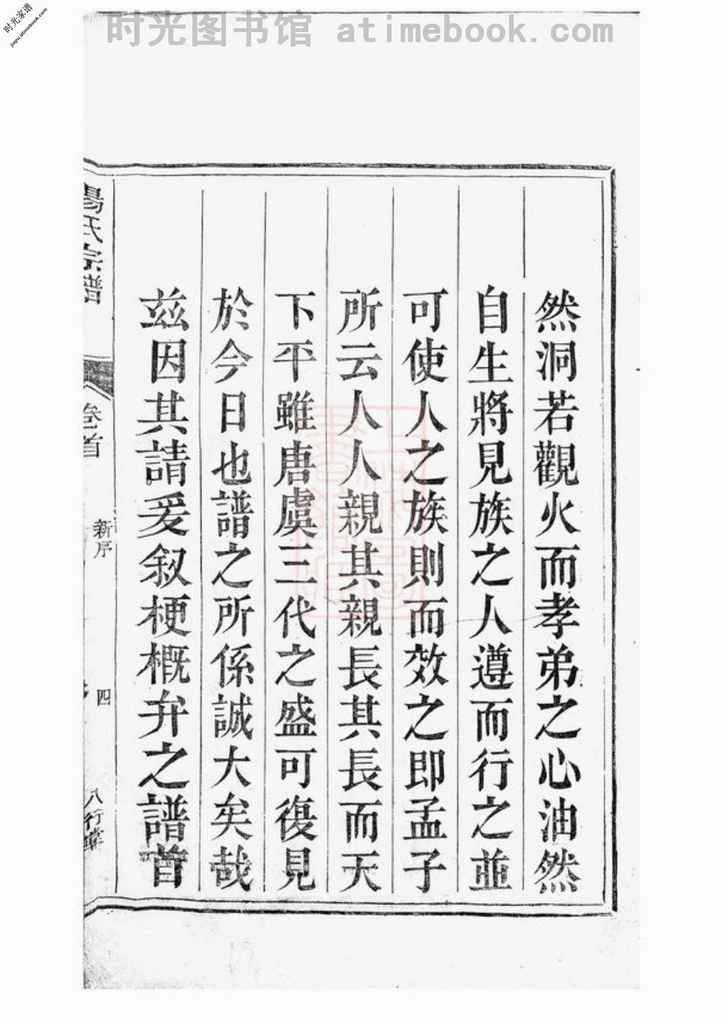 时光图书馆 atimebook.com
时光家谱
jiapu.atimebook.com
然洞若觀火而孝弟之心油然
自生將見族之人遵而行之並
可使人之族則而效之即孟子
所云人人親其親長其長而天
下平雖唐虞三代之盛可復見
於今日也譜之所係誠大矣哉
茲因其請爰敘梗概弁之譜首
楊氏宗譜
卷首
新序
四
八行堂